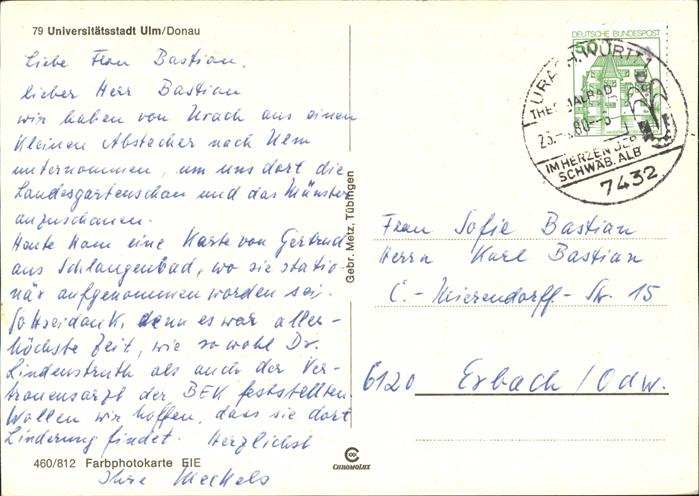 79 Universitätsstadt Ulm/Donau
Liebe Frau Bastian,
lieber Herr Bastian
wir haben von Urach aus einen
kleinen Abstecher nach Ulm
unternommen, um uns dort die
Landesgartenschau und das Münster
anzuschauen.
Heute kam eine Karte von Gertrud
aus Schlangenbad, wo sie statio-
när aufgenommen worden sei.
Gottseidank, denn es war aller-
höchste Zeit, wie sowohl Dr.
Lindenstruth als auch der Ver-
trauensarzt der BEK feststellten.
Wollen wir hoffen, dass sie dort
Linderung findet. Herzlichst
Ihre Meckels
460/812 Farbphotokarte EIE
Gebr. Metz, Tübingen
CHROMOLUX
DEUTSCHE BUNDESPOST
50
URACH, WÜRTT 1
THERMALBAD
80
IM HERZEN DER
SCHWÄB. ALB
7432
Frau Sofie Bastian
Herrn Karl Bastian
C.-Mierendorff-Str. 15
6120 Erbach/Odw.